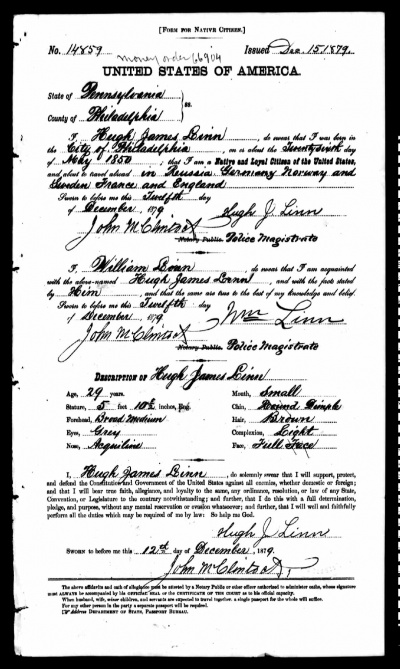 [Form for Native Citizen.]
No. 14859 Issued Dec. 15 1879.
money order 66904
UNITED STATES OF AMERICA.
State of Pennsylvania
County of Philadelphia } ss.
I, Hugh James Linn, do swear that I was born in
the City of Philadelphia, on or about the Twenty sixth day
of May 1850, that I am a Native and Loyal Citizen of the United States,
and about to travel abroad in Russia Germany Norway and
Sweden France and England
Sworn to before me this Twelfth day
of December, 1879 Hugh J. Linn
John McClintock
Notary Public. Police Magistrate
I, William Linn, do swear that I am acquainted
with the above-named Hugh James Linn, and with the facts stated
by Him, and that the same are true to the best of my knowledge and belief.
Sworn to before me this Twelfth day
of December, 1879 Wm Linn
John McClintock
Notary Public. Police Magistrate
Description of Hugh James Linn
Age, 29 years. Mouth, Small
Stature, 5 feet 10½ inches, Eng. Chin, Round Dimple
Forehead, Broad Medium Hair, Brown
Eyes, Grey Complexion, Light
Nose, Acquiline Face, Full Face
I, Hugh James Linn, do solemnly swear that I will support, protect,
and defend the Constitution and Government of the United States against all enemies, whether domestic or foreign;
and that I will bear true faith, allegiance, and loyalty to the same, any ordinance, resolution, or law of any State,
Convention, or Legislature to the contrary notwithstanding; and further, that I do this with a full determination,
pledge, and purpose, without any mental reservation or evasion whatsoever; and further, that I will well and faithfully
perform all the duties which may be required of me by law: So help me God.
Hugh J. Linn
Sworn to before me this 12th day of December, 1879.
John McClintock,
The above affidavits and oath of allegiance must be attested by a Notary Public or other officer authorized to administer oaths, whose signature
must ALWAYS be accompanied by his OFFICIAL SEAL or the CERTIFICATE OF THE COURT as to his official capacity.
When husband, wife, minor children, and servants are expected to travel together, a single passport for the whole will suffice.
For any other person in the party a separate passport will be required.
☞ Address DEPARTMENT OF STATE, PASSPORT BUREAU.